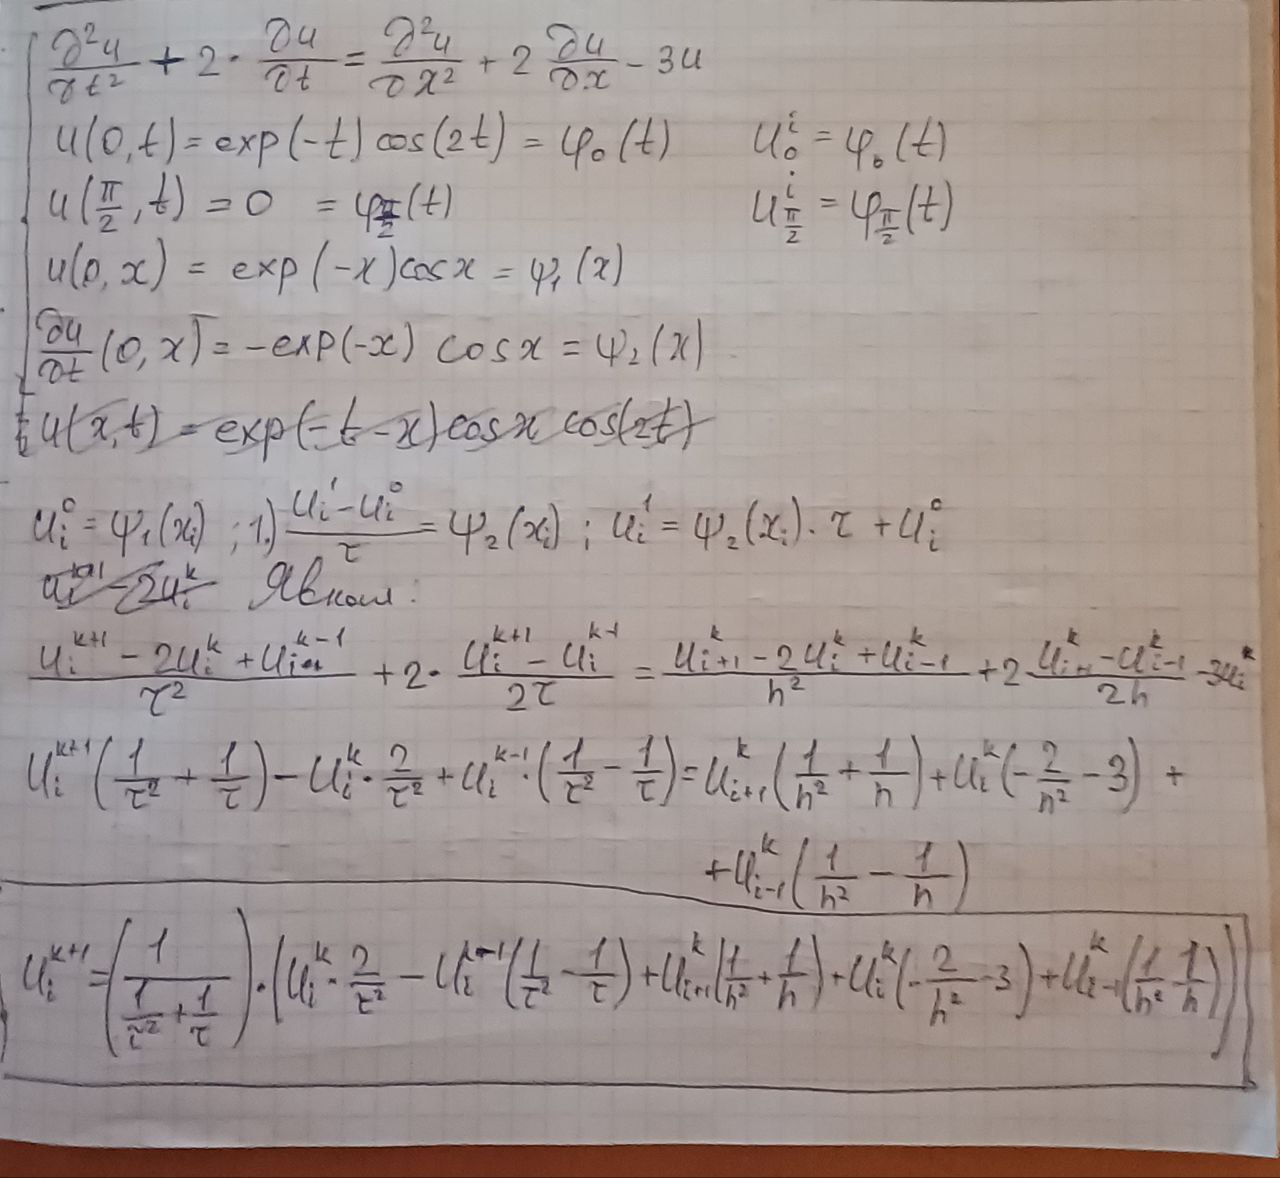 ∂²u/∂t² + 2 · ∂u/∂t = ∂²u/∂x² + 2 ∂u/∂x - 3u
u(0,t) = exp(-t) cos(2t) = φ₀(t)    u₀ⁱ = φ₀(t)
u(π/2, t) = 0 = φ_{π/2}(t)    u_{π/2}ⁱ = φ_{π/2}(t)
u(0,x) = exp(-x)cosx = ψ₁(x)
∂u/∂t (0,x) = -exp(-x) cosx = ψ₂(x)
u(x,t) = exp(-t-x)cosx cos(2t)
u_i^0 = ψ₁(x_i) ; 1.) (u_i^1 - u_i^0)/τ = ψ₂(x_i) ; u_i^1 = ψ₂(x_i) · τ + u_i^0
- 2u_i^k Явная:
(u_i^{k+1} - 2u_i^k + u_i^{k-1})/τ² + 2 · (u_i^{k+1} - u_i^{k-1})/2τ = (u_{i+1}^k - 2u_i^k + u_{i-1}^k)/h² + 2 (u_{i+1}^k - u_{i-1}^k)/2h - 3u_i^k
u_i^{k+1} (1/τ² + 1/τ) - u_i^k · 2/τ² + u_i^{k-1} · (1/τ² - 1/τ) = u_{i+1}^k (1/h² + 1/h) + u_i^k (-2/h² - 3) +
+ u_{i-1}^k (1/h² - 1/h)
u_i^{k+1} = (1/(1/τ² + 1/τ)) · (u_i^k · 2/τ² - u_i^{k-1} (1/τ² - 1/τ) + u_{i+1}^k (1/h² + 1/h) + u_i^k (-2/h² - 3) + u_{i-1}^k (1/h² - 1/h))